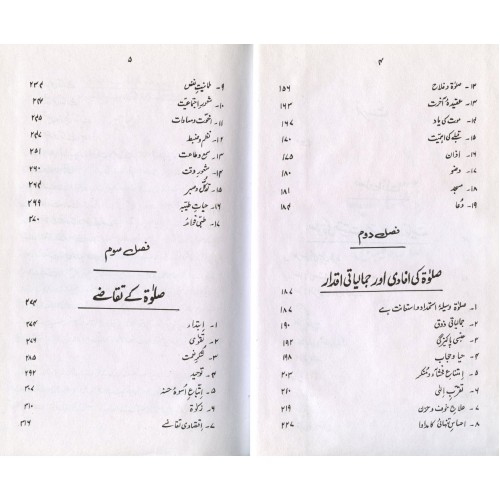 ۴
۱۳۔ صلوٰۃ و فلاح ۱۵۶
۱۴۔ عقیدۂ آخرت ۱۶۳
۱۵۔ موت کی یاد ۱۶۷
۱۵۔ قبلے کی اہمیت ۱۷۰
۱۶۔ اذان ۱۷۵
۱۷۔ وضو ۱۸۰
۱۸۔ مسجد ۱۸۱
۱۹۔ دُعا ۱۸۴
فصل دوم
صلوٰۃ کی افادی اور جمالیاتی اقدار ۱۸۷
۱۔ صلوٰۃ وسیلۂ استمداد و استعانت ہے ۱۸۷
۲۔ جمالیاتی ذوق ۱۹۰
۳۔ جنسی پاکیزگی ۱۹۲
۴۔ حیا و حجاب ۱۹۸
۵۔ امتناع فحشاء و منکر ۲۰۳
۶۔ تقرب الٰہی ۲۱۰
۷۔ علاج خوف و حزن ۲۱۹
۸۔ احساس تنہائی کا مداوا ۲۲۷
۵
۹۔ طمانیت نفس ۲۳۴
۱۰۔ شعور اجتماعیت ۲۴۴
۱۱۔ اخوت و مساوات ۲۴۷
۱۲۔ نظم و ضبط ۲۵۱
۱۳۔ سمع و طاعت ۲۶۰
۱۴۔ شعور وقت ۲۶۴
۱۵۔ توکل و صبر ۲۶۹
۱۶۔ حیات طیبہ ۲۷۰
۱۷۔ طبی فوائد
فصل سوم
صلوٰۃ کے تقاضے ۲۷۴
۱۔ ابتداء ۲۷۴
۲۔ تقویٰ ۲۷۹
۳۔ شکر نعمت ۲۸۵
۴۔ توحید
۵۔ اتباع اسوۂ حسنہ ۳۰۷
۶۔ زکوٰۃ ۳۱۰
۷۔ اقتصادی تقاضے ۳۱۶